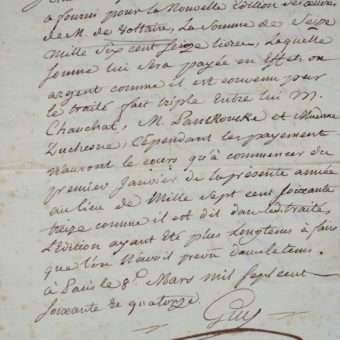 a fourni pour la Nouvelle Edition des œuvres
de M. de Voltaire, La Somme de Seize
Mille Six cent Seize livres, Laquelle
Somme lui Sera payée en Effet, ou
argent comme il est convenu par
le traité fait triple Entre lui M.
Chauchat, M Panckoucke et Madame
Duchesne; Cépendant les payement
N'auront le cours qu'à commencer du
premier Janvier de la presente année
au lieu de Mille Sept cent Soixante
treize comme il est dit dans le traité,
L'Edition ayant été plus Longtems à faire
que l'on N'avoit prévu dans le tems.
à Paris le 8. Mars mil sept cent
soixante et quatorze.
Guy